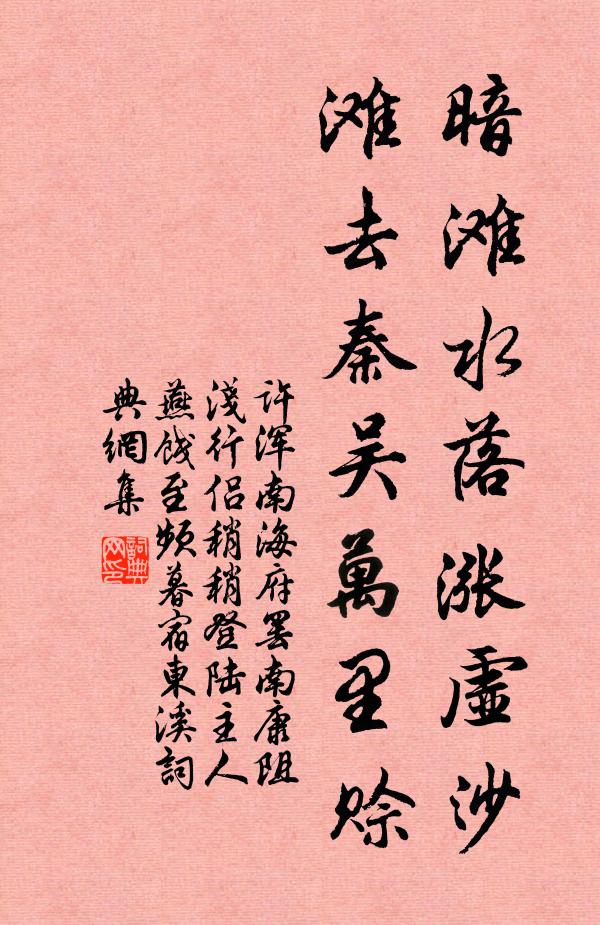 暗滩水落漲虛沙
滩去秦吴萬里賒
许渾南海府罢南康阻
淺行侣稍稍登陆主人
燕餞至頻暮宿東溪詞
典網集
詞典
网印